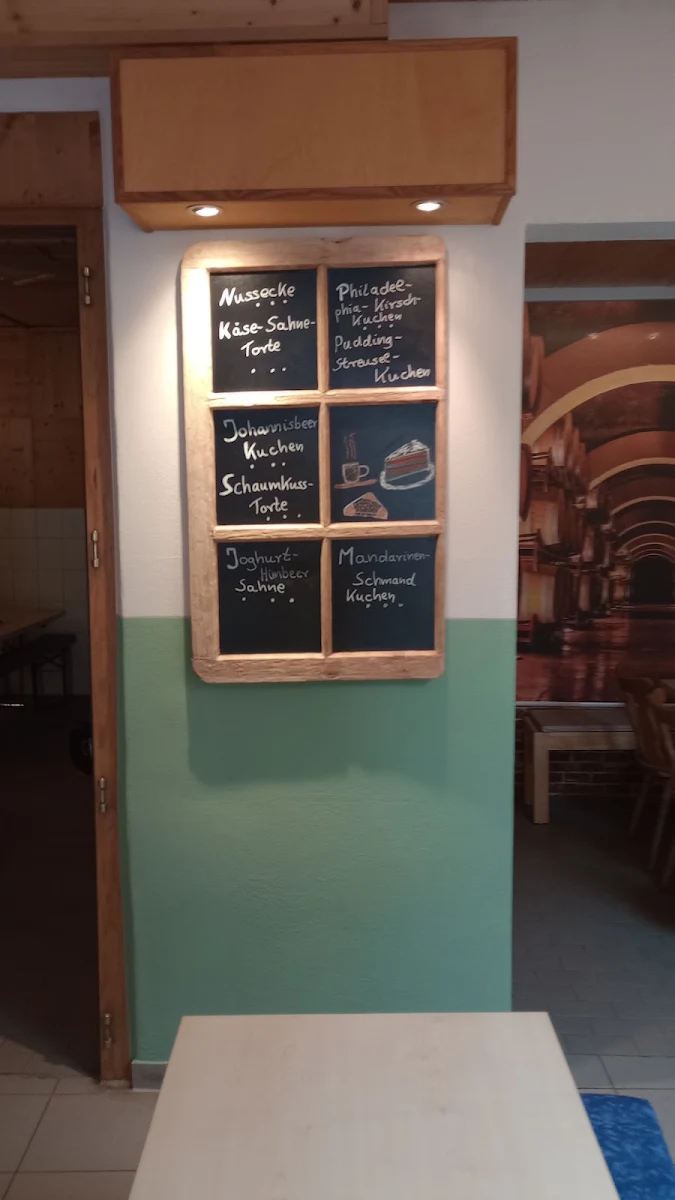 Nussecke
. . .
Käse-Sahne-
Torte
. . .
Philadel-
phia-Kirsch-
Kuchen
. . . .
Pudding-
Streusel-
Kuchen
Johannisbeer
Kuchen
. . .
Schaumkuss-
Torte
. . .
Joghurt-
Himbeer
Sahne
. . .
Mandarinen-
Schmand
Kuchen
. . .